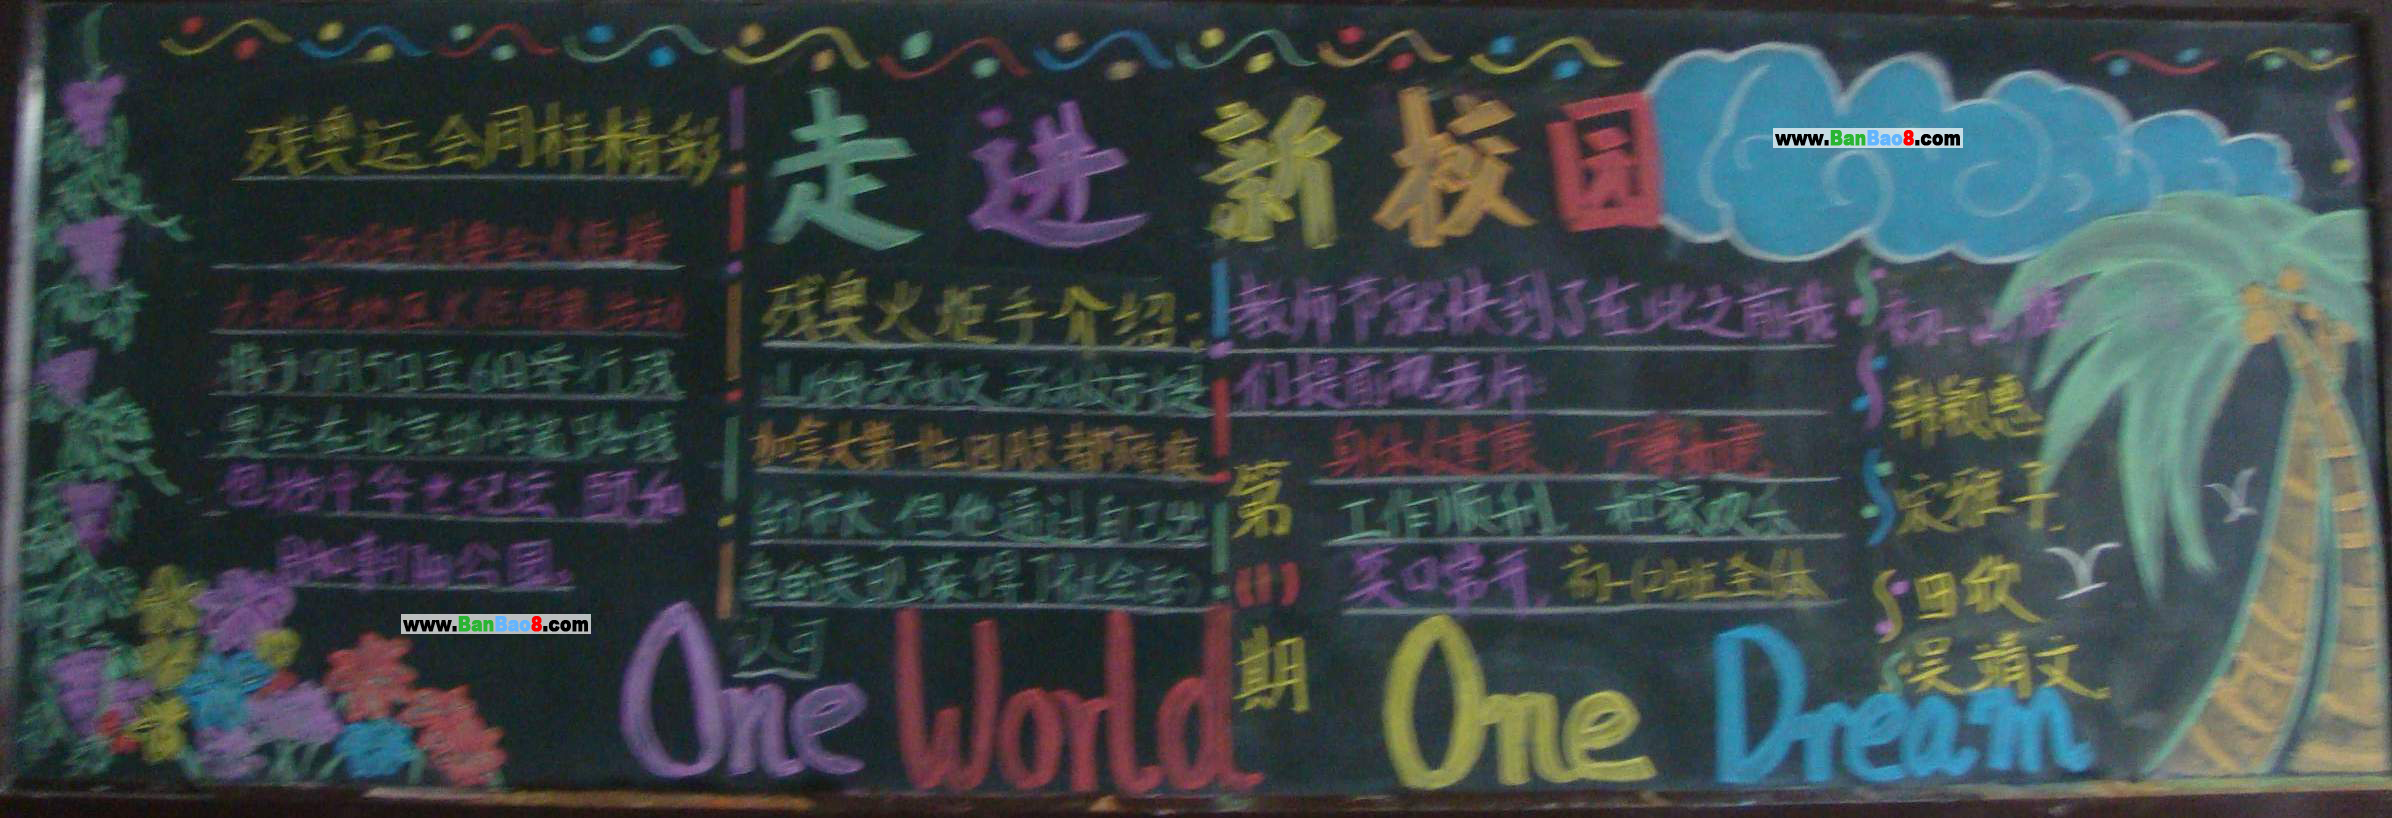 走进新校园
www.BanBao8.com
残奥运会同样精彩
2008年残奥会火炬接
力北京地区火炬传递活动
将于9月5日至6日举行残
奥会在北京的传递路线
包括中华世纪坛 颐和
朝阳公园。
残奥火炬手介绍:
加拿大第一位因
的 但他通过自己出
色的表现获得了社会的
认可
教师节就快到了在此之前我
们提前祝老师:
身体健康、万事如意、
工作顺利、和家欢乐
笑口常开。初一(2)班全体
第
(1)
期
韩颖惠
吴靖文。
www.BanBao8.com
One World One Dream